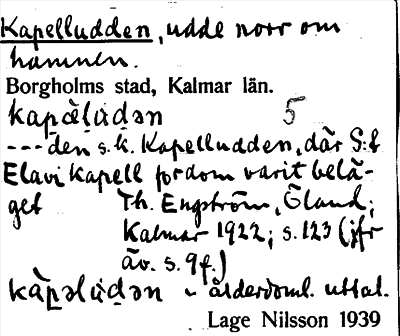 Kapelludden, udde norr om
hamnen.
Borgholms stad, Kalmar län.
kapä̀lúdən 5
--- den s.k. Kapelludden, där S:t
Elavi kapell fordom varit belä-
get Th. Engström, Öland;
Kalmar 1922; s. 123 (jfr
äv. s. 9f.)
kàpəlúdən - ålderdoml. uttal.
Lage Nilsson 1939